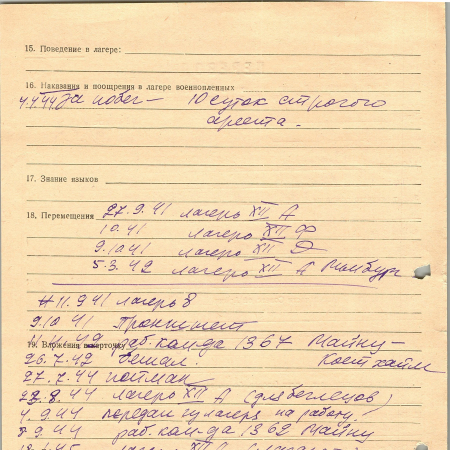 15. Поведение в лагере:
16. Наказания и поощрения в лагере военнопленных
4.4.44 За побег – 10 суток строгого
ареста.
17. Знание языков
18. Перемещения 27.9.41 лагерь XII А
10.41 лагерь XII Ф
9.10.41 лагерь XII Д
5.3.42 лагерь XII А Лимбург
11.9.41 лагерь 8
9.10.41
19. Вложения в карточку раб. ком-да 1367 Майну-
26.7.42 бежал. Костхайм
27.7.44 пойман
22.8.44 лагерь XII А (для беглецов)
4.9.44 передан на работу
8.9.44 раб. ком-да 1362 Майну
XII А